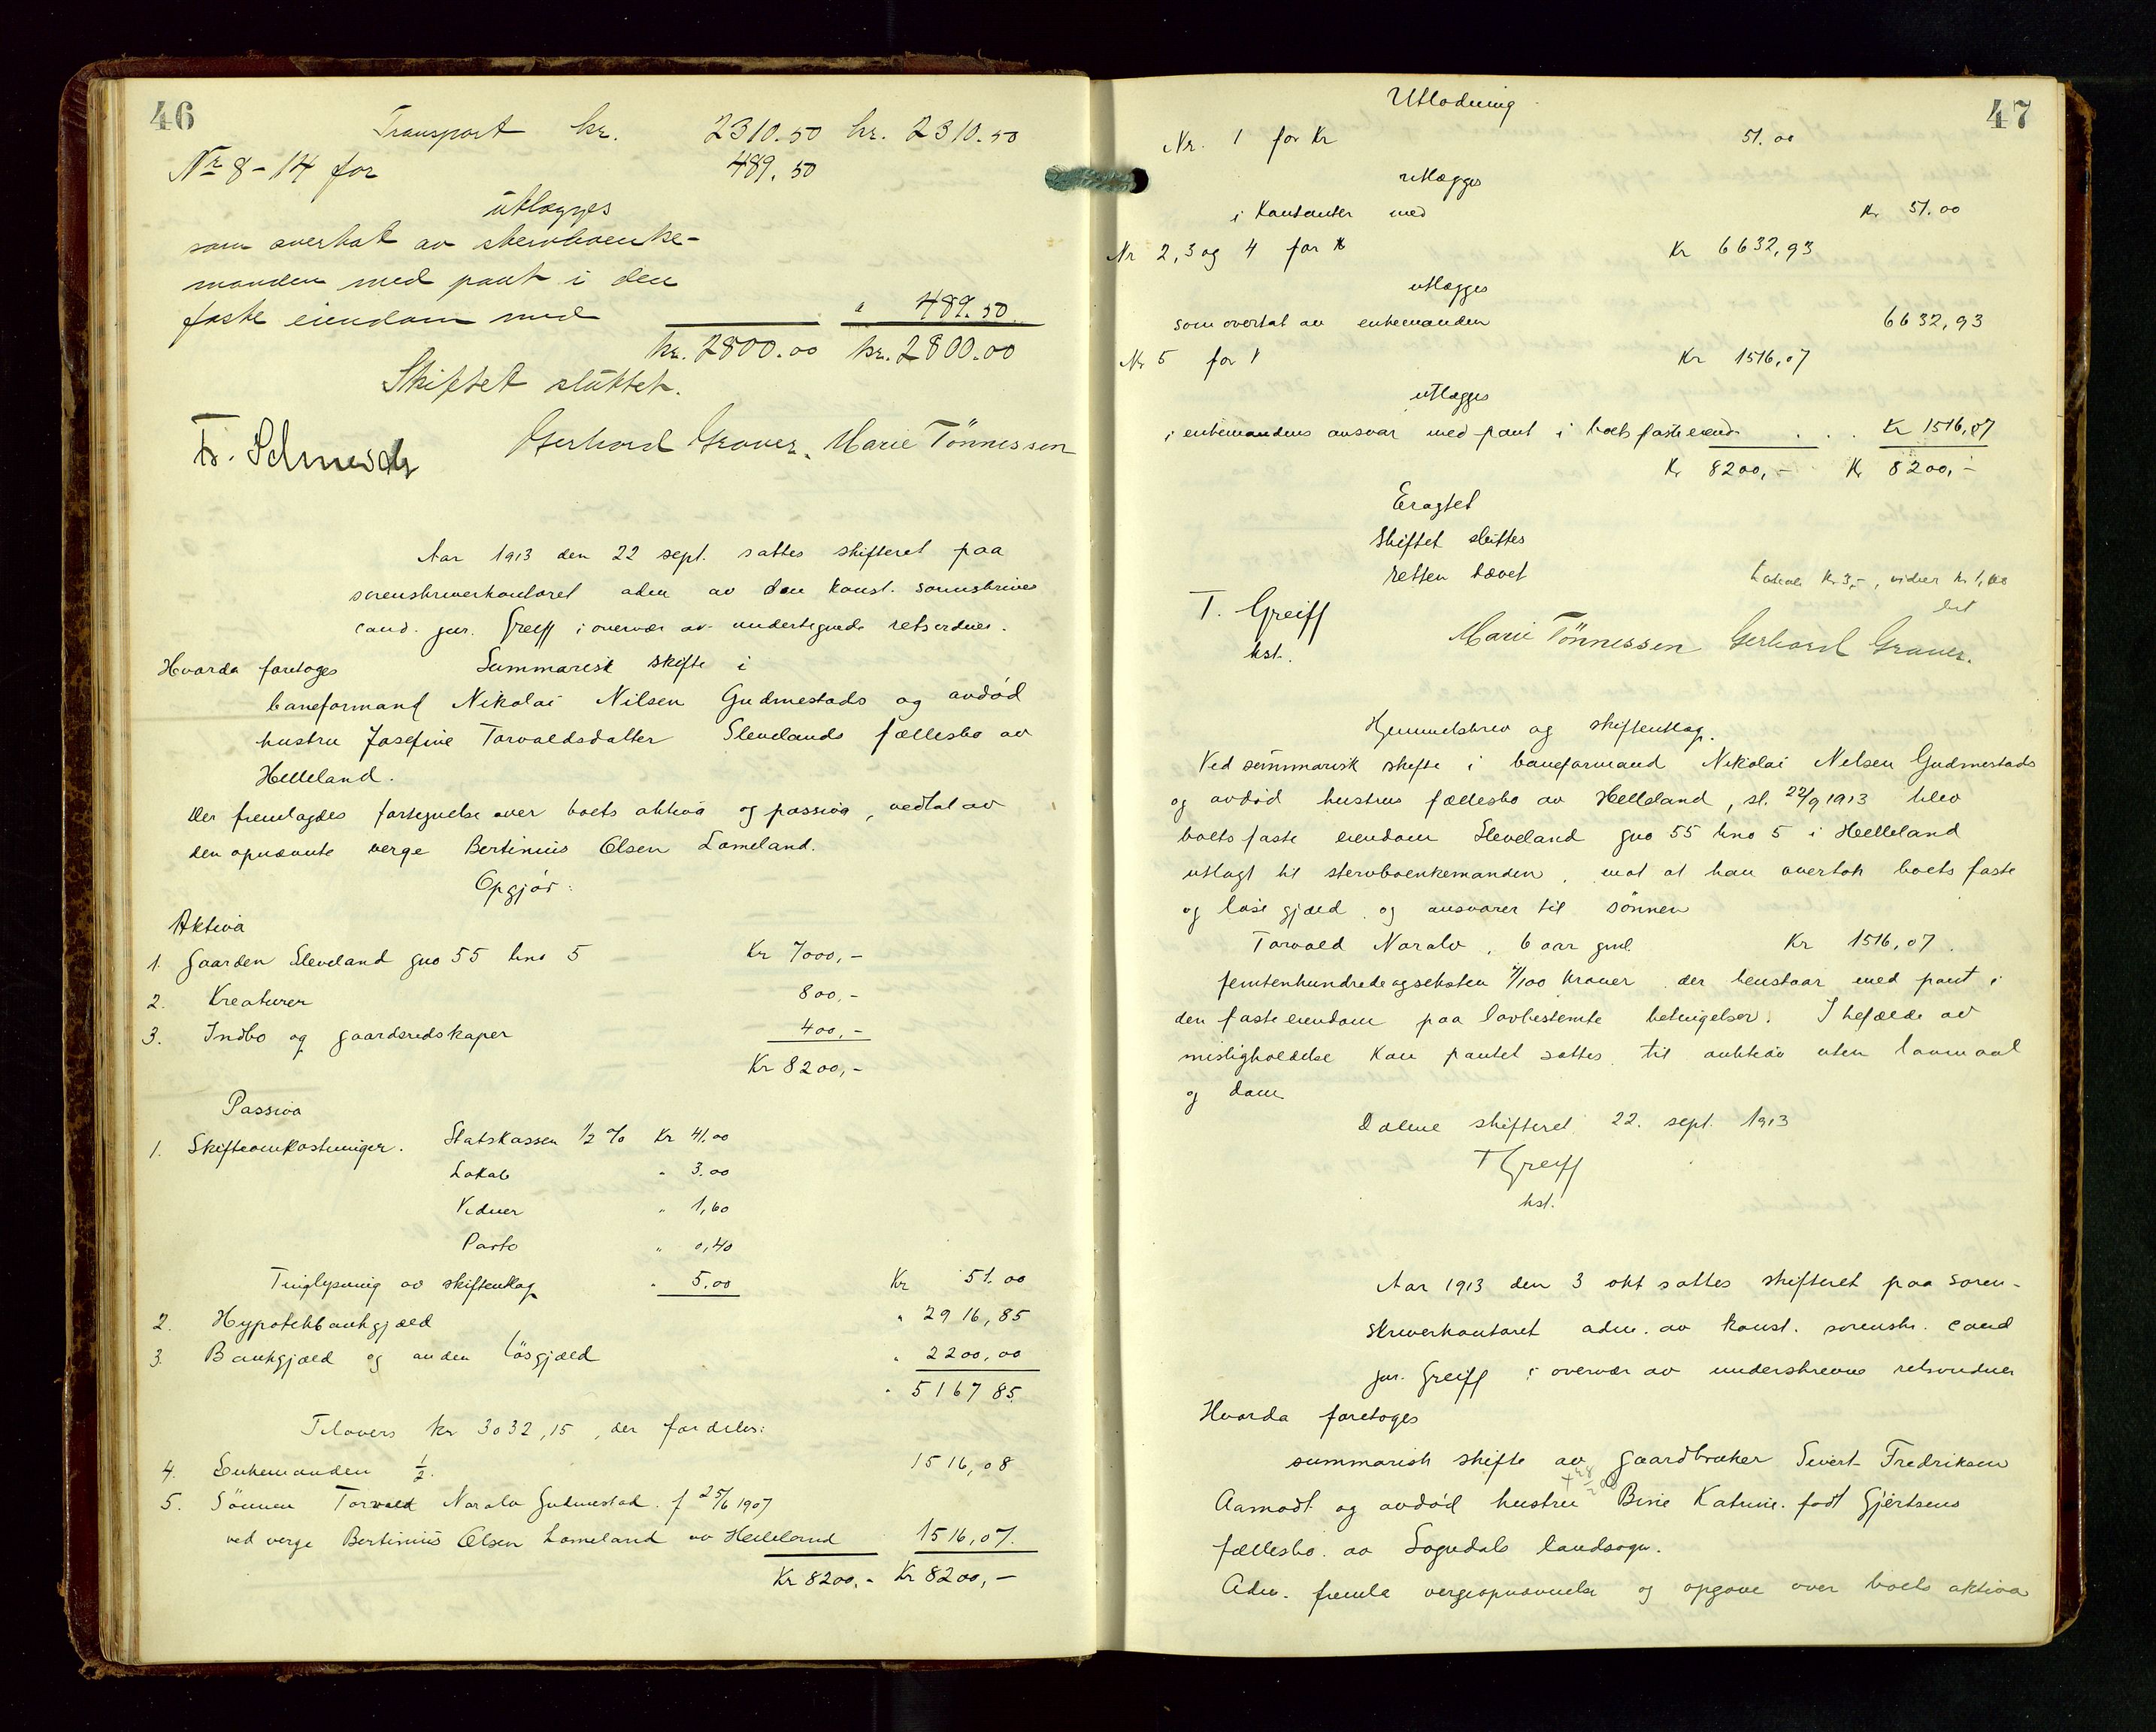 46
Transport kr. 2310.50 kr. 2310.50
Nr 8-14 for 489.50
utlægges
som overtat av stervboenke-
manden med pant i den
faste eiendom med " 489.50
kr. 2800.00 kr. 2800.00
Skiftet sluttet.
Gerhard Graver. Marie Tönnessen
Aar 1913 den 22 sept. sattes skifteret paa
sorenskriverkontoret adm av den konst. sorenskriver
cand. jur. Greiff i overvær av undertegnede retsvidner.
Hvorda foretoges Summarisk skifte i
baneformand Nikolai Nilsen Gudmestads og avdød
hustru Josefine Torvaldsdatter Slevelands fællesbo av
Helleland.
Der fremlagdes fortegnelse over boets aktiva og passiva, vedtat av
den opnævnte verge Bertinius Olsen Lomeland.
Opgjør:
Aktiva
1. Gaarden Sleveland gno 55 bno 5 Kr 7000,-
2. Kreaturer 800,-
3. Indbo og gaardsredskaper 400,-
Kr 8200,-
Passiva
1. Skifteomkostninger. Statskassen 1/2 % Kr 41.00
Lokale " 3.00
Vidner " 1,60
Porto " 0,40
Tinglysning av skifteutlag " 5.00 Kr 51.00
2. Hypotekbankgjæld " 2916,85
3. Bankgjæld og anden løsgjæld " 2200,00
" 5167 85
Tilovers kr 3032,15, der fordeles:
4. Enkemanden 1/2. 1516,08
5. Sönnen Torvald Naralv Gudmestad. f 25/6 1907
ved verge Bertinius Olsen Lomeland av Helleland 1516,07.
Kr 8200.- Kr 8200,-
47
Utlodning
Nr. 1 for Kr 51.00
utlægges
i Kontanter med Kr 51.00
Nr 2, 3 og 4 for Kr 6632,93
utlægges
som overtat av enkemanden 6632,93
Nr 5 for Kr 1516,07
utlægges
i enkemandens ansvar med pant i boets faste eiend. . . . Kr 1516,07
Kr 8200,- Kr 8200,-
Eragtet
Skiftet sluttes
Retten hævet
Lokale Kr 3,-, vidner kr 1,60
bet
T. Greiff
kst.
Marie Tönnessen Gerhard Graver.
Hjemmelsbrev og skifteutlag.
Ved summarisk skifte i baneformand Nikolai Nilsen Gudmestads
og avdød hustrus fællesbo av Helleland, sl. 22/9 1913 blev
boets faste eiendom Sleveland gno 55 bno 5 i Helleland
utlagt til stervboenkemanden, mot at han overtok boets faste
og løse gjæld og ansvarer til sönnen
Torvald Naralv, 6 aar gml. Kr 1516,07.
femtenhundredeogseksten 7/100 kroner der henstaar med pant i
den faste eiendom paa lovbestemte betingelser. I tilfælde av
misligholdelse kan pantet sættes til auktion uten lovmaal
og dom.
Dalene skifteret 22. sept. 1913
T Greiff
kst.
Aar 1913 den 3 okt sattes skifteret paa soren-
skriverkontoret adm. av konst. sorenskr. cand
jur. Greiff i overvær av underskrevne retsvidner
Hvorda foretoges
summarisk skifte av gaardbruker Sivert Fredriksen
Aamodt og avdød hustru Bine Katrine født Gjertsens
fællesbo. av Sogndals landsogn.
Adm. fremla vergeopnævnelse og opgave over boets aktiva